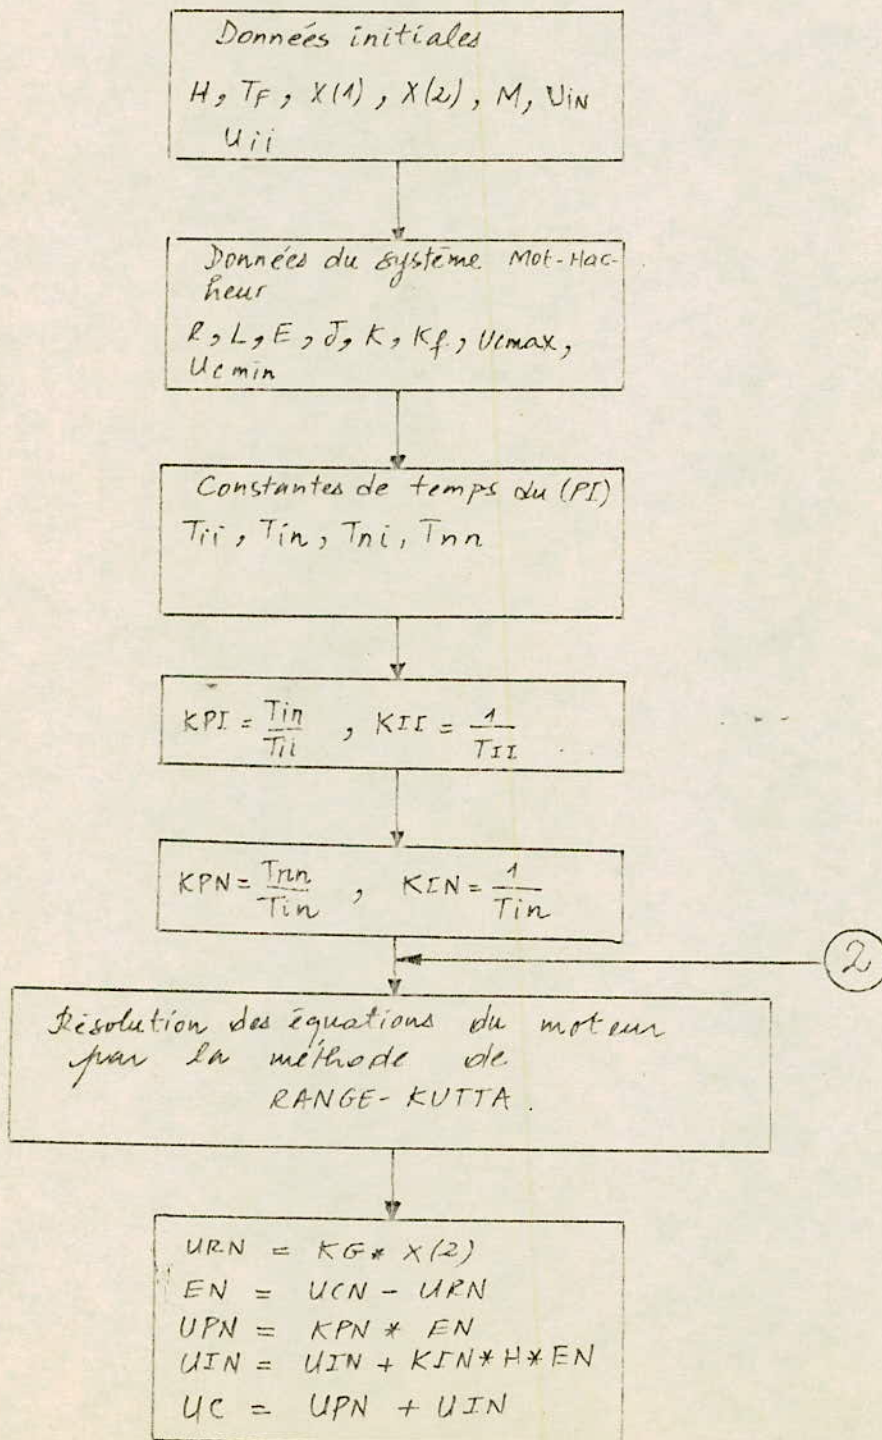 Données initiales
H, TF, X(1), X(2), M, UiN
Uii
Données du système Mot-Hac-
heur
R, L, E, J, K, Kf, Ucmax,
Ucmin
Constantes de temps du (PI)
Tii, Tin, Tni, Tnn
KPI = Tin/Tii , KII = 1/TII
KPN = Tnn/Tin , KIN = 1/Tin
2
Résolution des équations du moteur
par la méthode de
RANGE-KUTTA.
URN = KG* X(2)
EN = UCN - URN
UPN = KPN * EN
UIN = UIN + KIN*H*EN
UC = UPN + UIN